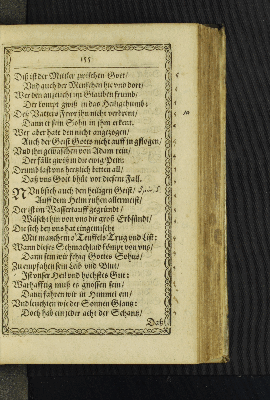 155
Diß ist der Mittler zwischen Gott/
Und auch der Menschen hie und dort/
Wer den anzeucht im Glauben frumb/
Der kompt gwiß in das
Deß Vatters Freur ihn nicht verbrent/
Dann er sein Sohn in ihm erkent.
Wer aber hatt den nicht angezogen/
Auch der Geist Gotts nicht auff in gflogen/
Und ihn gewaschen von Adam rein/
Der fällt gwiß in die ewig Pein:
Drumb last uns hertzlich betten all/
Daß uns Gott bhüt vor diesem Fall.
NUn bsich auch den heiligen Geist/
Auff dem Helm ruhen allermeist/
Der ist im Wassertauff gegründt/
Wäscht ihn von uns die groß Erbsündt/
Die sich bey uns hat eingemischt
Mit manchem Teuffels Trug und List:
Wann dieses Schmachland kömpt von uns/
Dann sein wir fehig Gottes Sohns/
Zu empfahen sein Leib und Blut/
Ist unser Heil und höchstes Gut:
Warhafftig wird es gnossen sein/
Dann fahren wir in Himmel ein/
Und leuchten wie der Sonnen Glantz:
Doch hab ein jeder acht der Schantz/
Daß
5
10
5